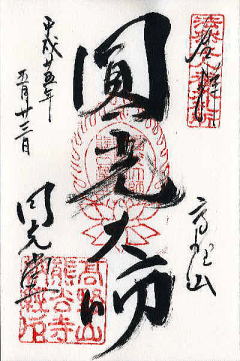 奉拝
高野山
圓光大師
平成廿五年
五月廿三日
円光堂
高野山
熊谷寺